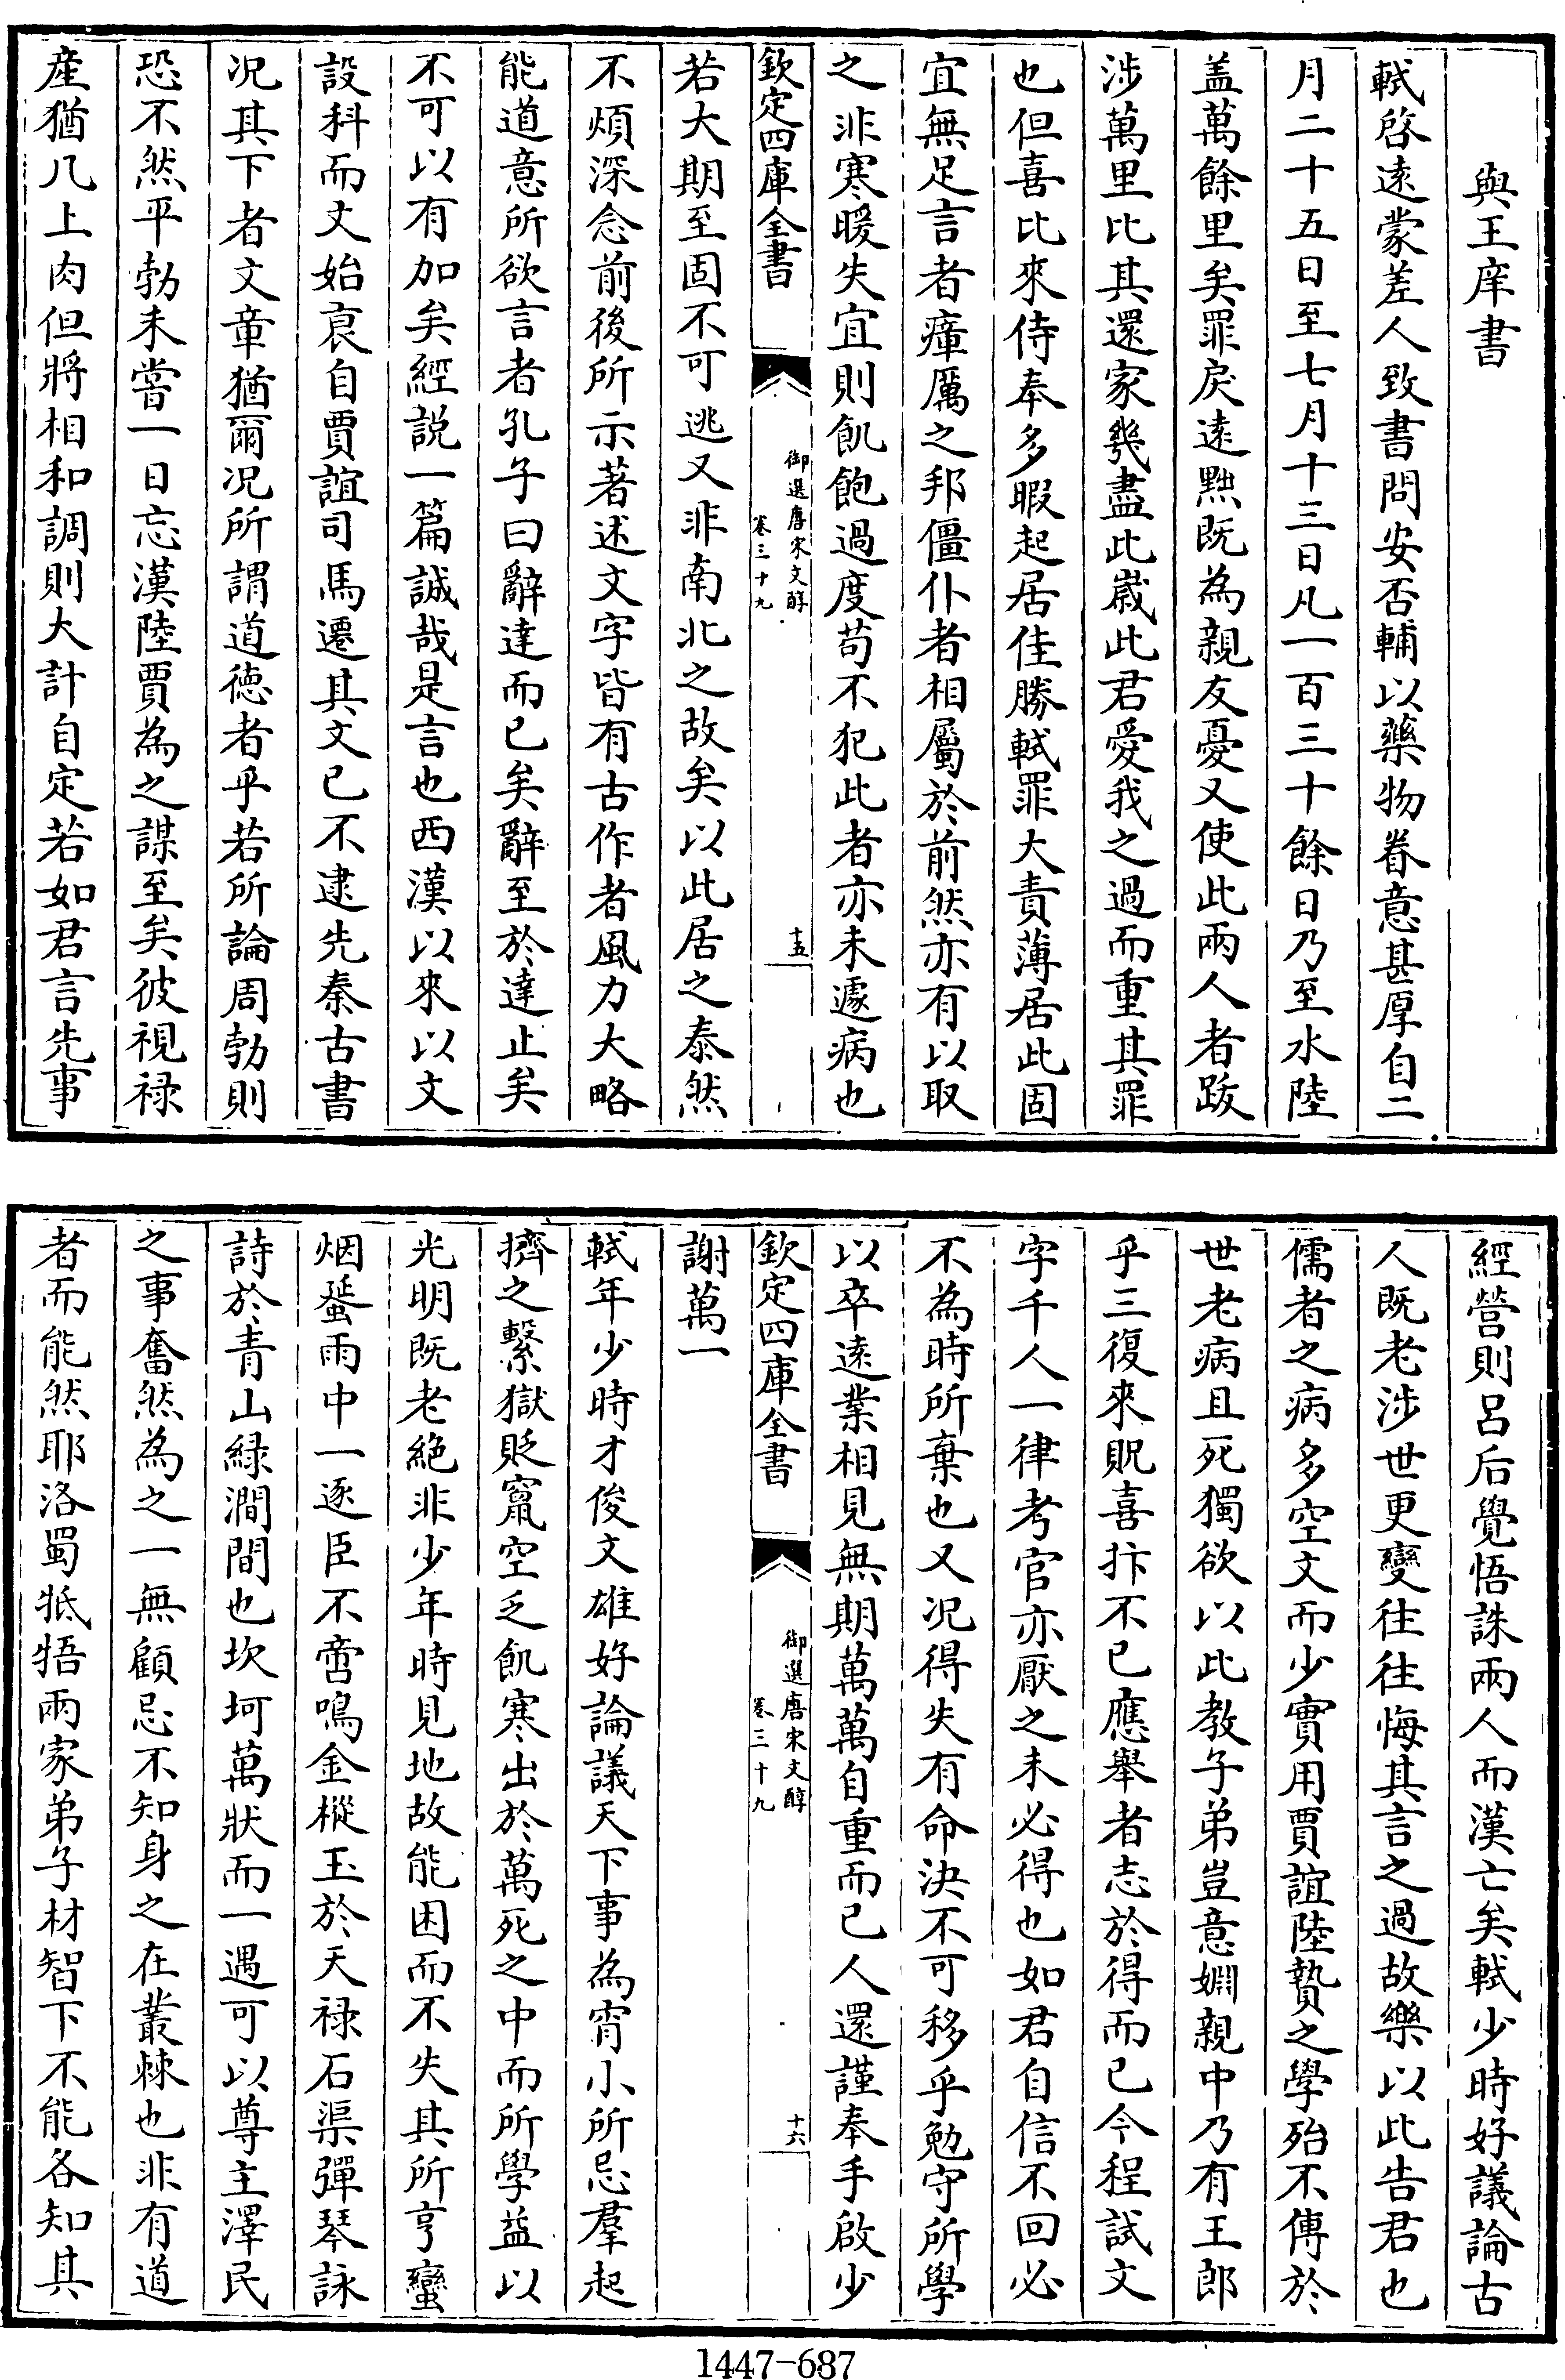 與王庠書
軾啓遠蒙差人致書問安否輔以藥物眷意甚厚自二
月二十五日至七月十三日凡一百三十餘日乃至水陸
盖萬餘里矣罪戾遠黜既為親友憂又使此兩人者跋
涉萬里比其還家幾盡此嵗此君愛我之過而重其罪
也但喜比來侍奉多暇起居佳勝軾罪大責薄居此固
宜無足言者瘴厲之邦僵仆者相屬於前然亦有以取
之非寒暖失宜則飢飽過度苟不犯此者亦未遽病也
欽定四庫全書
御選唐宋文醇
卷三十九
十五
若大期至固不可逃又非南北之故矣以此居之泰然
不煩深念前後所示著述文字皆有古作者風力大略
能道意所欲言者孔子曰辭達而已矣辭至於達止矣
不可以有加矣經説一篇誠哉是言也西漢以來以文
設科而文始衰自賈誼司馬遷其文已不逮先秦古書
况其下者文章猶爾况所謂道徳者乎若所論周勃則
恐不然平勃未嘗一日忘漢陸賈為之謀至矣彼視禄
産猶几上肉但將相和調則大計自定若如君言先事
經營則呂后覺悟誅兩人而漢亡矣軾少時好議論古
人既老涉世更變往往悔其言之過故樂以此告君也
儒者之病多空文而少實用賈誼陸贄之學殆不傳於
世老病且死獨欲以此教子弟豈意婣親中乃有王郎
乎三復來貺喜抃不已應舉者志於得而已今程試文
字千人一律考官亦厭之未必得也如君自信不回必
不為時所棄也又况得失有命決不可移乎勉守所學
以卒遠業相見無期萬萬自重而已人還謹奉手啟少
欽定四庫全書
御選唐宋文醇
卷三十九
十六
謝萬一
軾年少時才俊文雄好論議天下事為宵小所忌羣起
擠之繫獄貶竄空乏飢寒出於萬死之中而所學益以
光明既老絶非少年時見地故能困而不失其所亨蠻
烟蜑雨中一逐臣不啻鳴金樅玉於天禄石渠彈琴詠
詩於青山緑澗間也坎坷萬狀而一遇可以尊主澤民
之事奮然為之一無顧忌不知身之在叢棘也非有道
者而能然耶洛蜀牴牾兩家弟子材智下不能各知其
1447-687